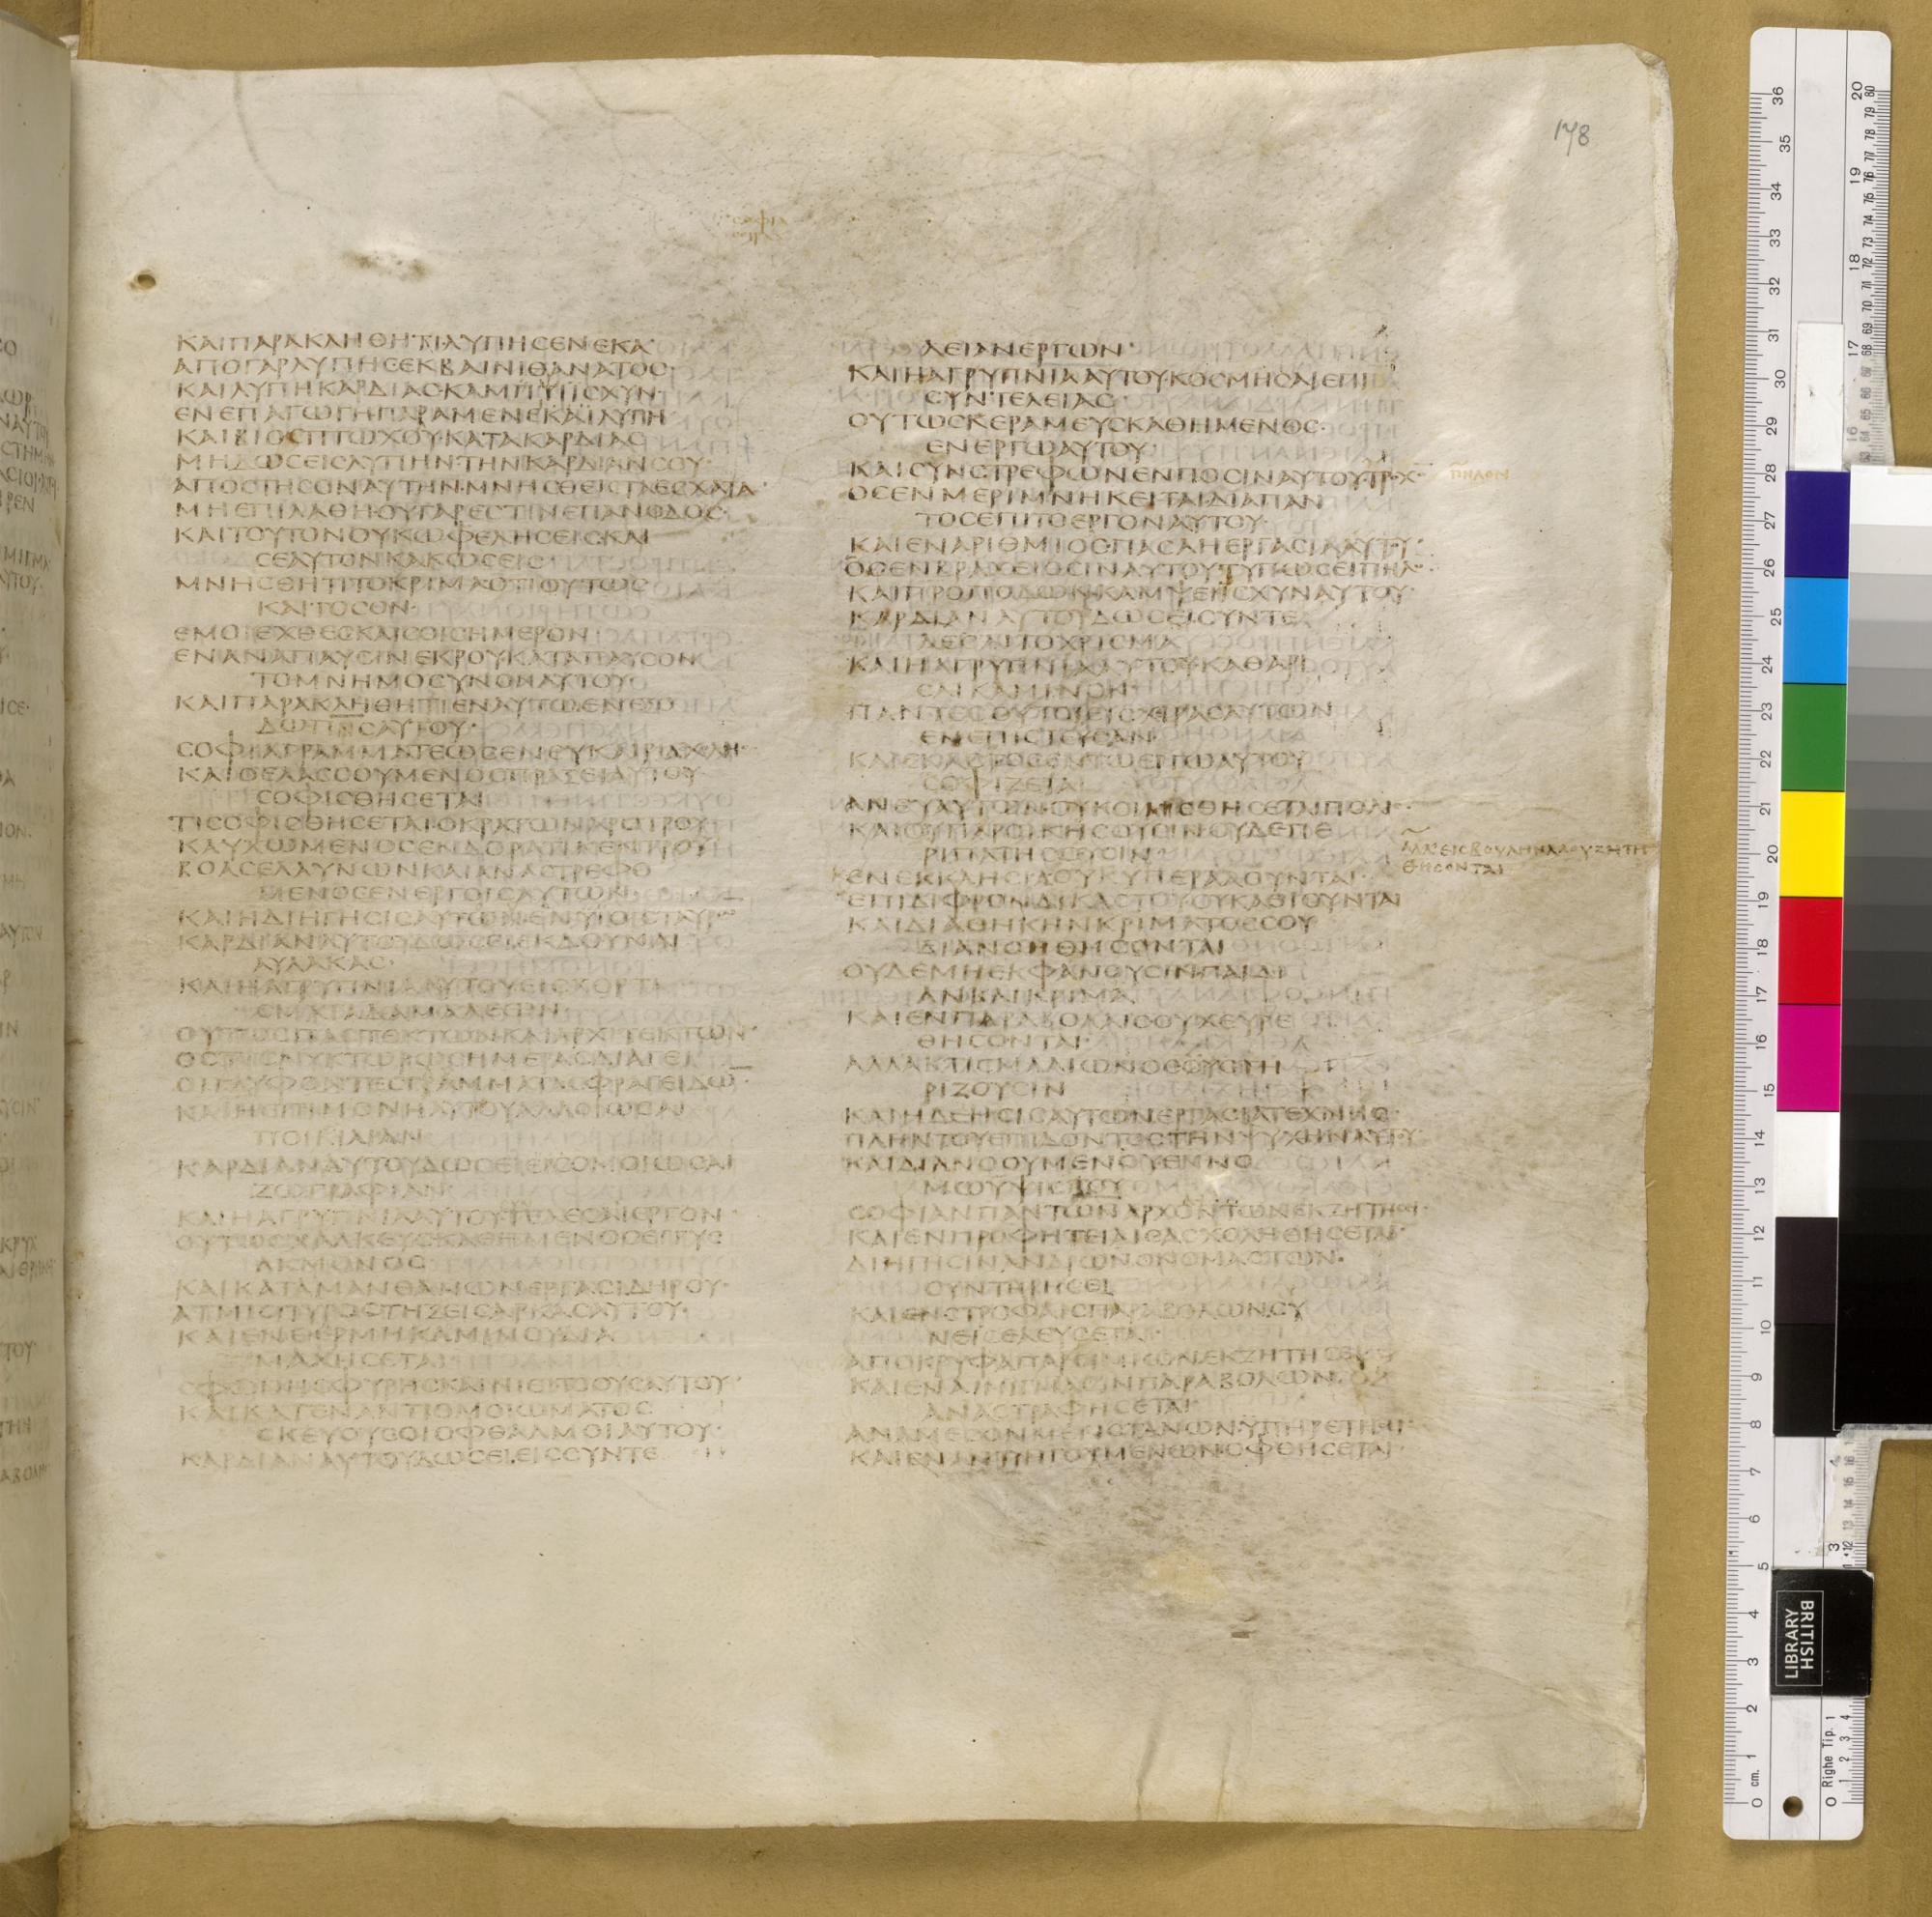 178
ΚΑΙΠΑΡΑΚΛΗΘΗΤΙΛΥΠΗСΕΝΕΚΑ
ΑΠΟΓΑΡΛΥΠΗСΕΚΒΑΙΝΙΘΑΝΑΤΟС
ΚΑΙΛΥΠΗΚΑΡΔΙΑСΚΑΜΠΤΙΙСΧΥΝ
ΕΝΕΠΑΓΩΓΗΠΑΡΑΜΕΝΕΚΑΙΛΥΠΗ
ΚΑΙΒΙΟСΠΤΩΧΟΥΚΑΤΑΚΑΡΔΙΑС
ΜΗΔΩСΕΙСΛΥΠΗΝΤΗΝΚΑΡΔΙΑΝСΟΥ
ΑΠΟСΤΗСΟΝΑΥΤΗΝΜΝΗСΘΕΙСΤΑΕСΧΑΤΑ
ΜΗΕΠΙΛΑΘΗΟΥΓΑΡΕСΤΙΝΕΠΑΝΟΔΟС
ΚΑΙΤΟΥΤΟΝΟΥΚΩΦΕΛΗСΕΙСΚΑΙ
СΕΑΥΤΟΝΚΑΚΩСΕΙС
ΜΝΗСΘΗΤΙΤΟΚΡΙΜΑΟΤΙΟΥΤΩС
ΚΑΙΤΟСΟΝ
ΕΜΟΙΕΧΘΕСΚΑΙСΟΙСΗΜΕΡΟΝ
ΕΝΑΝΑΠΑΥСΙΝΕΚΡΟΥΚΑΤΑΠΑΥСΟΝ
ΤΟΜΝΗΜΟСΥΝΟΝΑΥΤΟΥ
ΚΑΙΠΑΡΑΚΛΗΘΗΤΙΕΝΑΥΤΩΕΝΕΞΟ
ΔΩΠΝСΑΥΤΟΥ
СΟΦΙΑΓΡΑΜΜΑΤΕΩСΕΝΕΥΚΑΙΡΙΑСΧΟΛΗ
ΚΑΙΟΕΛΑССΟΥΜΕΝΟСΠΡΑΞΕΙΑΥΤΟΥ
СΟΦΙСΘΗСΕΤΑΙ
ΤΙСΟΦΙСΘΗСΕΤΑΙΟΚΡΑΤΩΝΑΡΟΤΡΟΥ
ΚΑΥΧΩΜΕΝΟСΕΝΔΟΡΑΤΙΚΕΝΤΡΟΥ
ΒΟΑСΕΛΑΥΝΩΝΚΑΙΑΝΑСΤΡΕΦΟ
ΜΕΝΟСΕΝΕΡΓΟΙСΑΥΤΩΝ
ΚΑΙΗΔΙΗΓΗСΙСΑΥΤΩΝΕΝΥΙΟΙСΤΑΥΡ
ΚΑΡΔΙΑΝΑΥΤΟΥΔΩСΕΙΕΚΔΟΥΝΑΙ
ΑΥΛΑΚΑС
ΚΑΙΗΑΓΡΥΠΝΙΑΑΥΤΟΥΕΙСΧΟΡΤΑ
СΜΑΤΑΔΑΜΑΛΕΩΝ
ΟΥΤΩСΠΑСΤΕΚΤΩΝΚΑΙΑΡΧΙΤΕΚΤΩΝ
ΟСΤΙСΝΥΚΤΩΡΩСΗΜΕΡΑСΔΙΑΓΕΙ
ΟΙΓΛΥΦΟΝΤΕСΓΡΑΜΜΑΤΑСΦΡΑΓΕΙΔΩ
ΚΑΙΗΕΠΙΜΟΝΗΑΥΤΟΥΑΛΛΟΙΩСΑΙ
ΠΟΙΚΙΛΙΑΝ
ΚΑΡΔΙΑΝΑΥΤΟΥΔΩСΕΙΕΙСΟΜΟΙΩСΑΙ
ΖΩΓΡΑΦΙΑΝ
ΚΑΙΗΑΓΡΥΠΝΙΑΑΥΤΟΥΤΕΛΕСΑΙΕΡΓΟΝ
ΟΥΤΩСΧΑΛΚΕΥСΚΑΘΗΜΕΝΟСΕΓΓΥС
ΑΚΜΟΝΟС
ΚΑΙΚΑΤΑΜΑΝΘΑΝΩΝΕΡΓΑСΙΔΗΡΟΥ
ΑΤΜΙСΠΥΡΟСΤΗΞΕΙСΑΡΚΑСΑΥΤΟΥ
ΚΑΙΕΝΘΕΡΜΗΚΑΜΙΝΟΥΔΙΑ
ΜΑΧΗСΕΤΑΙ
ΚΑΙΚΑΤΕΝΑΝΤΙΟΜΟΙΩΜΑΤΟС
СΚΕΥΟΥСΟΙΟΦΘΑΛΜΟΙΑΥΤΟΥ
ΚΑΡΔΙΑΝΑΥΤΟΥΔΩСΕΙΕΙССΥΝΤΕ
ΛΕΙΑΝΕΡΓΩΝ
ΚΑΙΗΑΓΡΥΠΝΙΑΑΥΤΟΥΚΟСΜΗСΑΙΕΠΙ
СΥΝΤΕΛΕΙΑС
ΟΥΤΩСΚΕΡΑΜΕΥСΚΑΘΗΜΕΝΟС
ΕΝΕΡΓΩΑΥΤΟΥ
ΚΑΙСΥΝСΤΡΕΦΩΝΕΝΠΟСΙΝΑΥΤΟΥΤΡΟΧ
ΠΗΛΟΝ
ΟСΕΝΜΕΡΙΜΝΗΚΕΙΤΑΙΔΙΑΠΑΝ
ΤΟСΕΠΙΤΟΕΡΓΟΝΑΥΤΟΥ
ΚΑΙΕΝΑΡΙΘΜΙΟСΠΑСΑΗΕΡΓΑСΙΑΑΥΤΥ
ΟСΕΝΒΡΑΧΕΙΟСΙΝΑΥΤΟΥΤΥΠΩСΕΙΠΗΛ
ΚΑΙΠΡΟΠΟΔΩΝΚΑΜΨΕΙΙСΧΥΝΑΥΤΟΥ
ΚΑΡΔΙΑΝΑΥΤΟΥΔΩСΕΙСΥΝΤΕ
ΛΕСΑΙΤΟΧΡΙСΜΑ
ΚΑΙΗΑΓΡΥΠΝΙΑΑΥΤΟΥΚΑΘΑΡΙ
СΑΙΚΑΜΙΝΟΝ
ΠΑΝΤΕСΟΥΤΟΙΕΙСΧΙΡΑСΑΥΤΩΝ
ΕΝΕΠΙСΤΕΥСΑΝ
ΚΑΙΕΚΑСΤΟСΕΝΤΩΕΡΓΩΑΥΤΟΥ
СΟΦΙΖΕΤΑΙ
ΑΝΕΥΑΥΤΩΝΟΥΚΟΙΚΙСΘΗСΕΤΑΙΠΟΛΙ
ΚΑΙΟΥΠΑΡΟΙΚΗСΟΥСΙΝΟΥΔΕΠΕ
ΡΙΠΑΤΗСΟΥСΙΝ
ΑΛΛΕΙСΒΟΥΛΗΝΛΑΟΥΖΗΤΗ
ΘΗСΟΝΤΑΙ
ΚΕΝΕΚΚΛΗСΙΑΟΥΚΥΠΕΡΑΛΟΥΝΤΑΙ
ΕΠΙΔΙΦΡΟΝΔΙΚΑСΤΟΥΟΥΚΑΘΙΟΥΝΤΑΙ
ΚΑΙΔΙΑΘΗΚΗΝΚΡΙΜΑΤΟСΟΥ
ΔΙΑΝΟΗΘΗСΟΝΤΑΙ
ΟΥΔΕΜΗΕΚΦΑΝΟΥСΙΝΠΑΙΔΙ
ΑΝΚΑΙΚΡΙΜΑ
ΚΑΙΕΝΠΑΡΑΒΟΛΑΙСΟΥΧΕΥΡΕ
ΘΗСΟΝΤΑΙ
ΑΛΛΑΚΤΙСΜΑΑΙΩΝΟСΟΥСΤΗ
ΡΙΖΟΥСΙΝ
ΚΑΙΗΔΕΗСΙСΑΥΤΩΝΕΡΓΑСΙΑΤΕΧΝΗС
ΠΛΗΝΤΟΥΕΠΙΔΟΝΤΟСΤΗΝΨΥΧΗΝΑΥΤΥ
ΚΑΙΔΙΑΝΟΟΥΜΕΝΟΥΕΝΝΟ
ΜΩΥΨΙСΤΟΥ
СΟΦΙΑΝΠΑΝΤΩΝΑΡΧΟΝΤΩΝΕΚΖΗΤΗСΙ
ΚΑΙΕΝΠΡΟΦΗΤΕΙΑΙСΑСΧΟΛΗΘΗСΕΤΑΙ
ΔΙΗΓΗСΙΝΑΝΔΡΩΝΟΝΟΜΑСΤΩΝ
СΥΝΤΗΡΗСΕΙ
ΚΑΙΕΝСΤΡΟΦΑΙСΠΑΡΑΒΟΛΩΝСΥ
ΝΕΙСΕΛΕΥСΕΤΑΙ
ΑΠΟΚΡΥΦΑΠΑΡΟΙΜΙΩΝΕΚΖΗΤΗСΕΙ
ΚΑΙΕΝΑΙΝΙΓΜΑСΙΝΠΑΡΑΒΟΛΩΝ
ΑΝΑСΤΡΑΦΗСΕΤΑΙ
ΑΝΑΜΕСΟΝΜΕΓΙСΤΑΝΩΝΥΠΗΡΕΤΗСΙ
ΚΑΙΕΝΑΝΤΙΗΓΟΥΜΕΝΩΝΟΦΘΗСΕΤΑΙ
BRITISH
LIBRARY
Righe Tip. 1
cm.